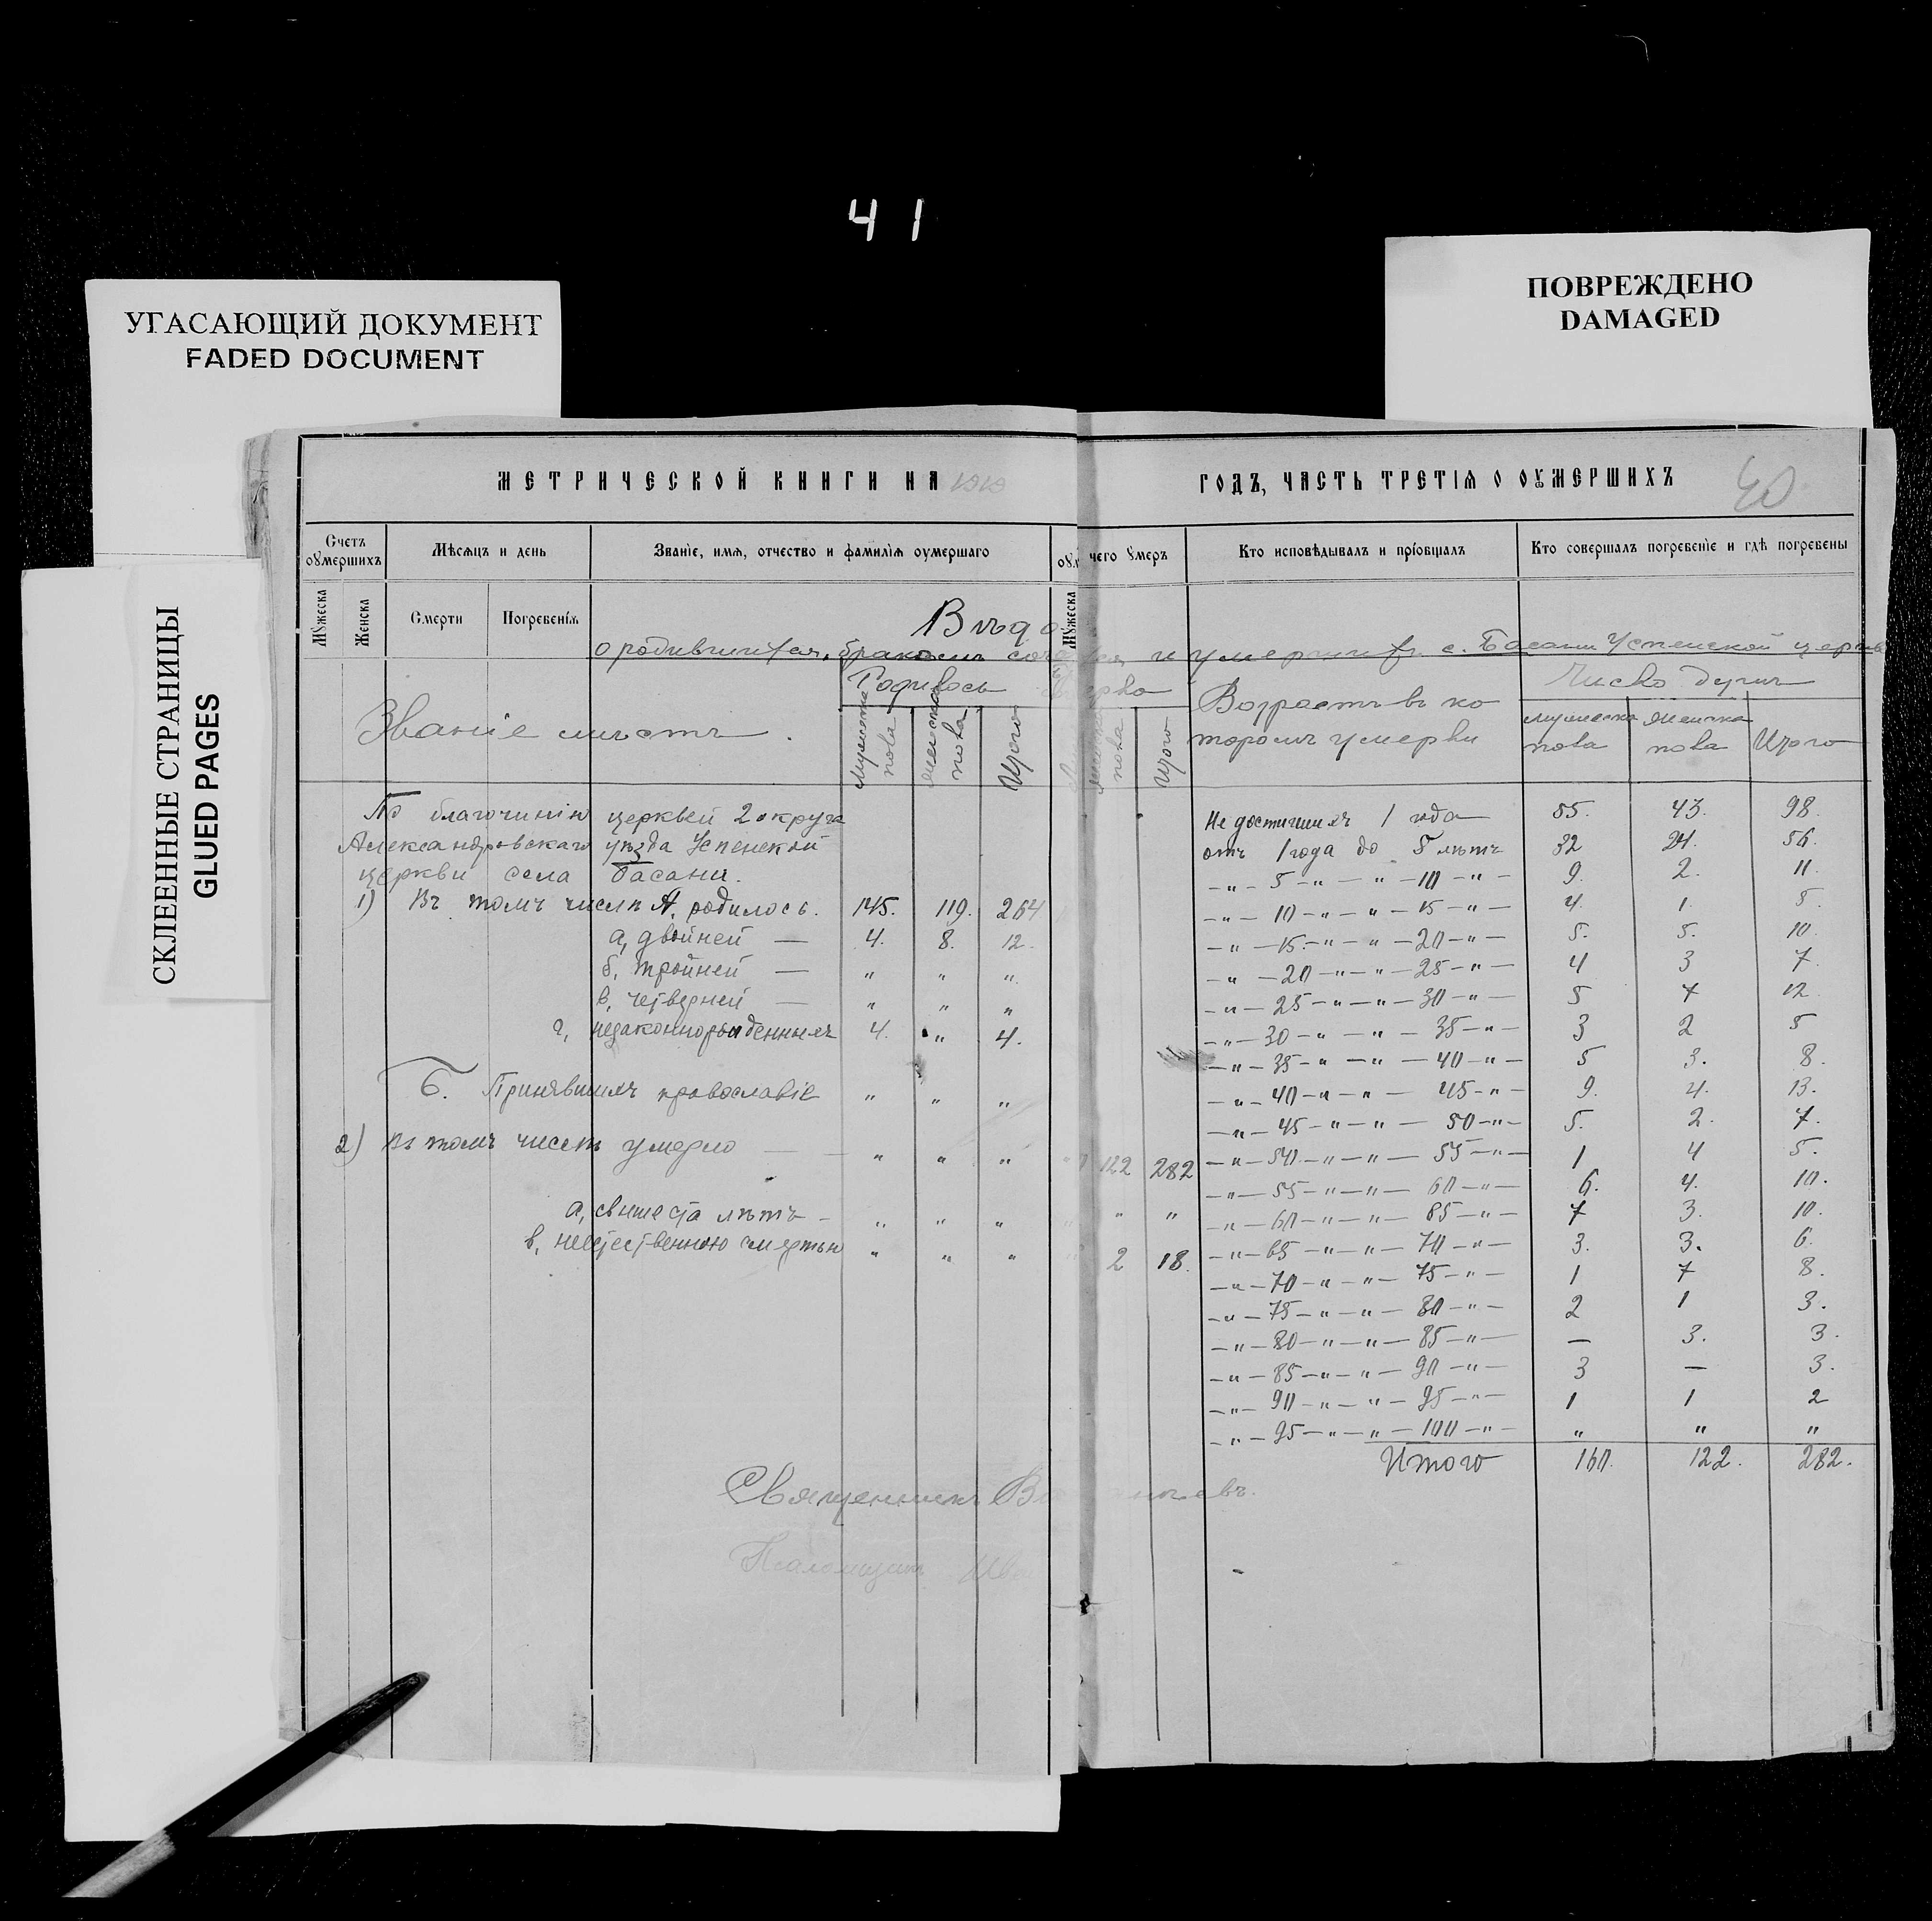 41
УГАСАЮЩИЙ ДОКУМЕНТ
FADED DOCUMENT
ПОВРЕЖДЕНО
DAMAGED
СКЛЕЕННЫЕ СТРАНИЦЫ
GLUED PAGES
МЕТРИЧЕСКОЙ КНИГИ НА
ГОДЪ, ЧАСТЬ ТРЕТІЯ О ОУМЕРШИХЪ 40
Счетъ оумершихъ
Мѣсяцъ и день
Званіе, имя, отчество и фамилія оумершаго
чего умеръ
Кто исповѣдывалъ и пріобщалъ
Кто совершалъ погребеніе и гдѣ погребены
Мужеска
Женска
Смерти
Погребенія
Мужеска
Вѣдо
о родившихся, бракомъ и умершихъ с. Басани Успенской церкви
Званіе мѣстъ.
Родилось
Мужеска пола
Женска пола
Итого
пола
Итого
Возрастъ въ ко
торомъ умерли
Число душъ
мужеска пола
женска пола
Итого
По благочинію церквей 2 округа
Александровскаго уѣзда Успенской
церкви села Басани.
1) Въ томъ числѣ А. родилось. 145. 119. 264
а, двойней — 4. 8. 12.
б, тройней — " " "
в, четверней — " " "
г, незаконнорожденныхъ 4. " 4.
Б. Принявшихъ православіе " " "
2) Въ томъ числѣ умерло — — " " " 122 282
а, свыше ста лѣтъ — " " " " "
в, неестественною смертью " " " 2 18.
Не достигшихъ 1 года 55. 43. 98.
отъ 1 года до 5 лѣтъ 32 24. 56.
— " — 5 — " — " — 10 — " — 9. 2. 11.
— " — 10 — " — " — 15 — " — 4. 1. 5.
— " — 15 — " — " — 20 — " — 5. 5. 10.
— " — 20 — " — " — 25 — " — 4 3 7.
— " — 25 — " — " — 30 — " — 5 7 12.
— " — 30 — " — " — 35 — " — 3 2 5
— " — 35 — " — " — 40 — " — 5 3. 8.
— " — 40 — " — " — 45 — " — 9. 4. 13.
— " — 45 — " — " — 50 — " — 5. 2. 7.
— " — 50 — " — " — 55 — " — 1 4 5.
— " — 55 — " — " — 60 — " — 6. 4. 10.
— " — 60 — " — " — 65 — " — 7 3. 10.
— " — 65 — " — " — 70 — " — 3. 3. 6.
— " — 70 — " — " — 75 — " — 1 7 8.
— " — 75 — " — " — 80 — " — 2 1 3.
— " — 80 — " — " — 85 — " — — 3. 3.
— " — 85 — " — " — 90 — " — 3 — 3.
— " — 90 — " — " — 95 — " — 1 1 2
— " — 95 — " — " — 100 — " — " " "
Итого 160. 122. 282.
Священникъ
Псаломщикъ